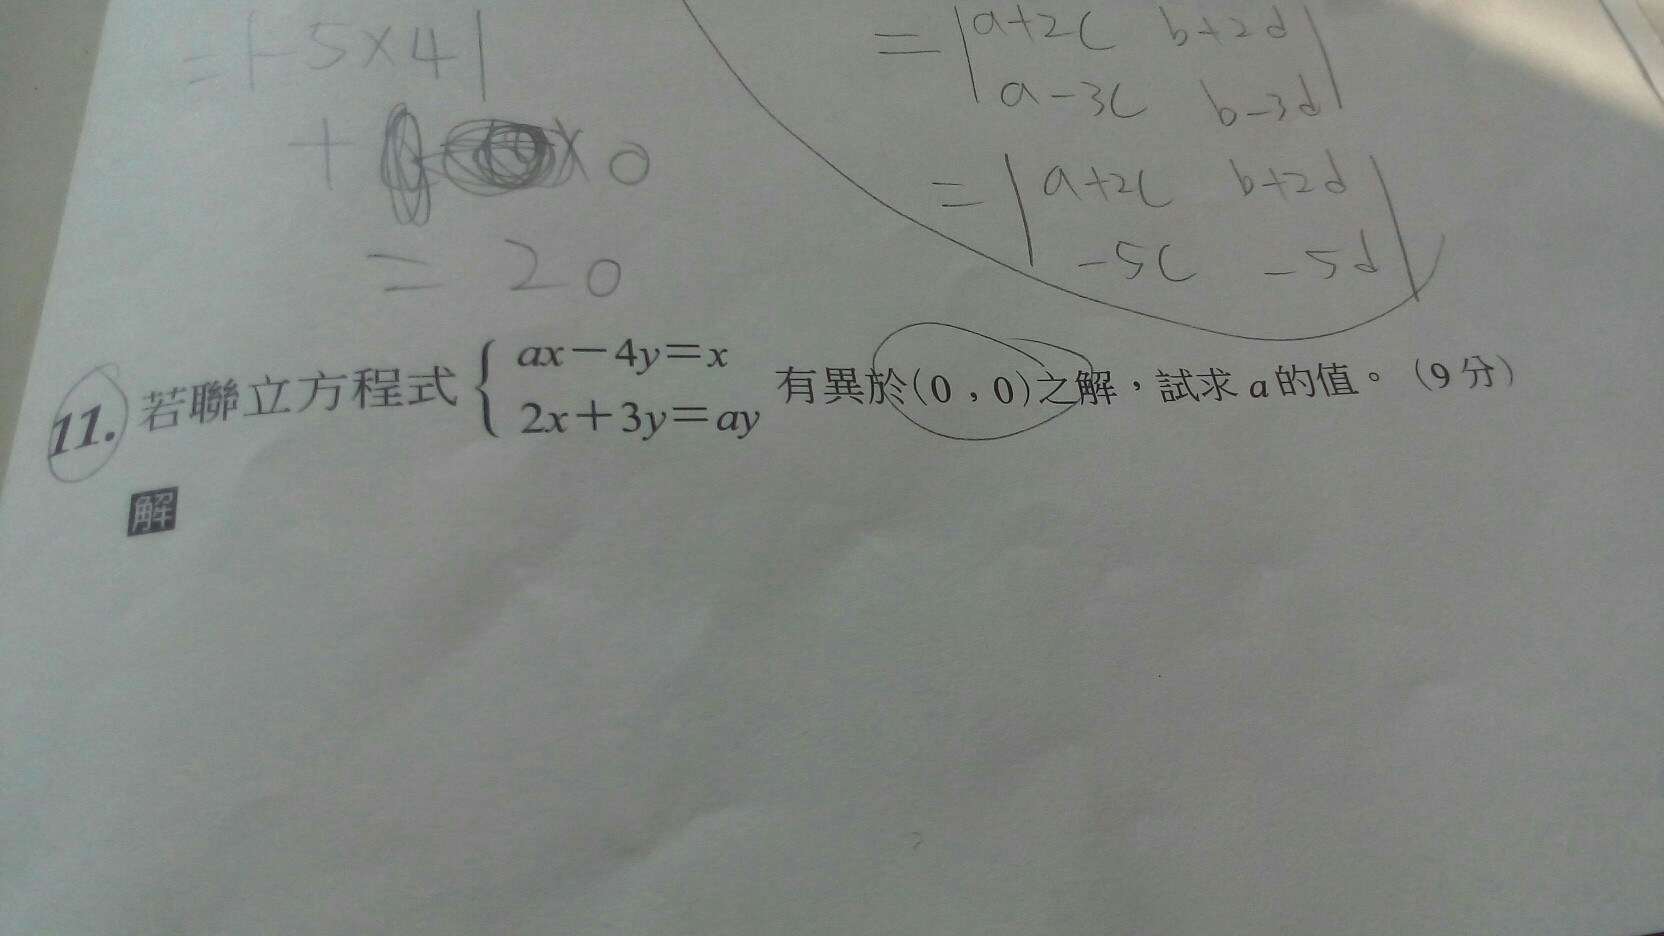 = |-5×4|
+ ×0
= 20
= |a+2c b+2d|
|a-3c b-3d|
= |a+2c b+2d|
|-5c -5d|
11. 若聯立方程式 { ax－4y＝x
2x＋3y＝ay 有異於(0，0)之解，試求 a 的值。（9 分）
解